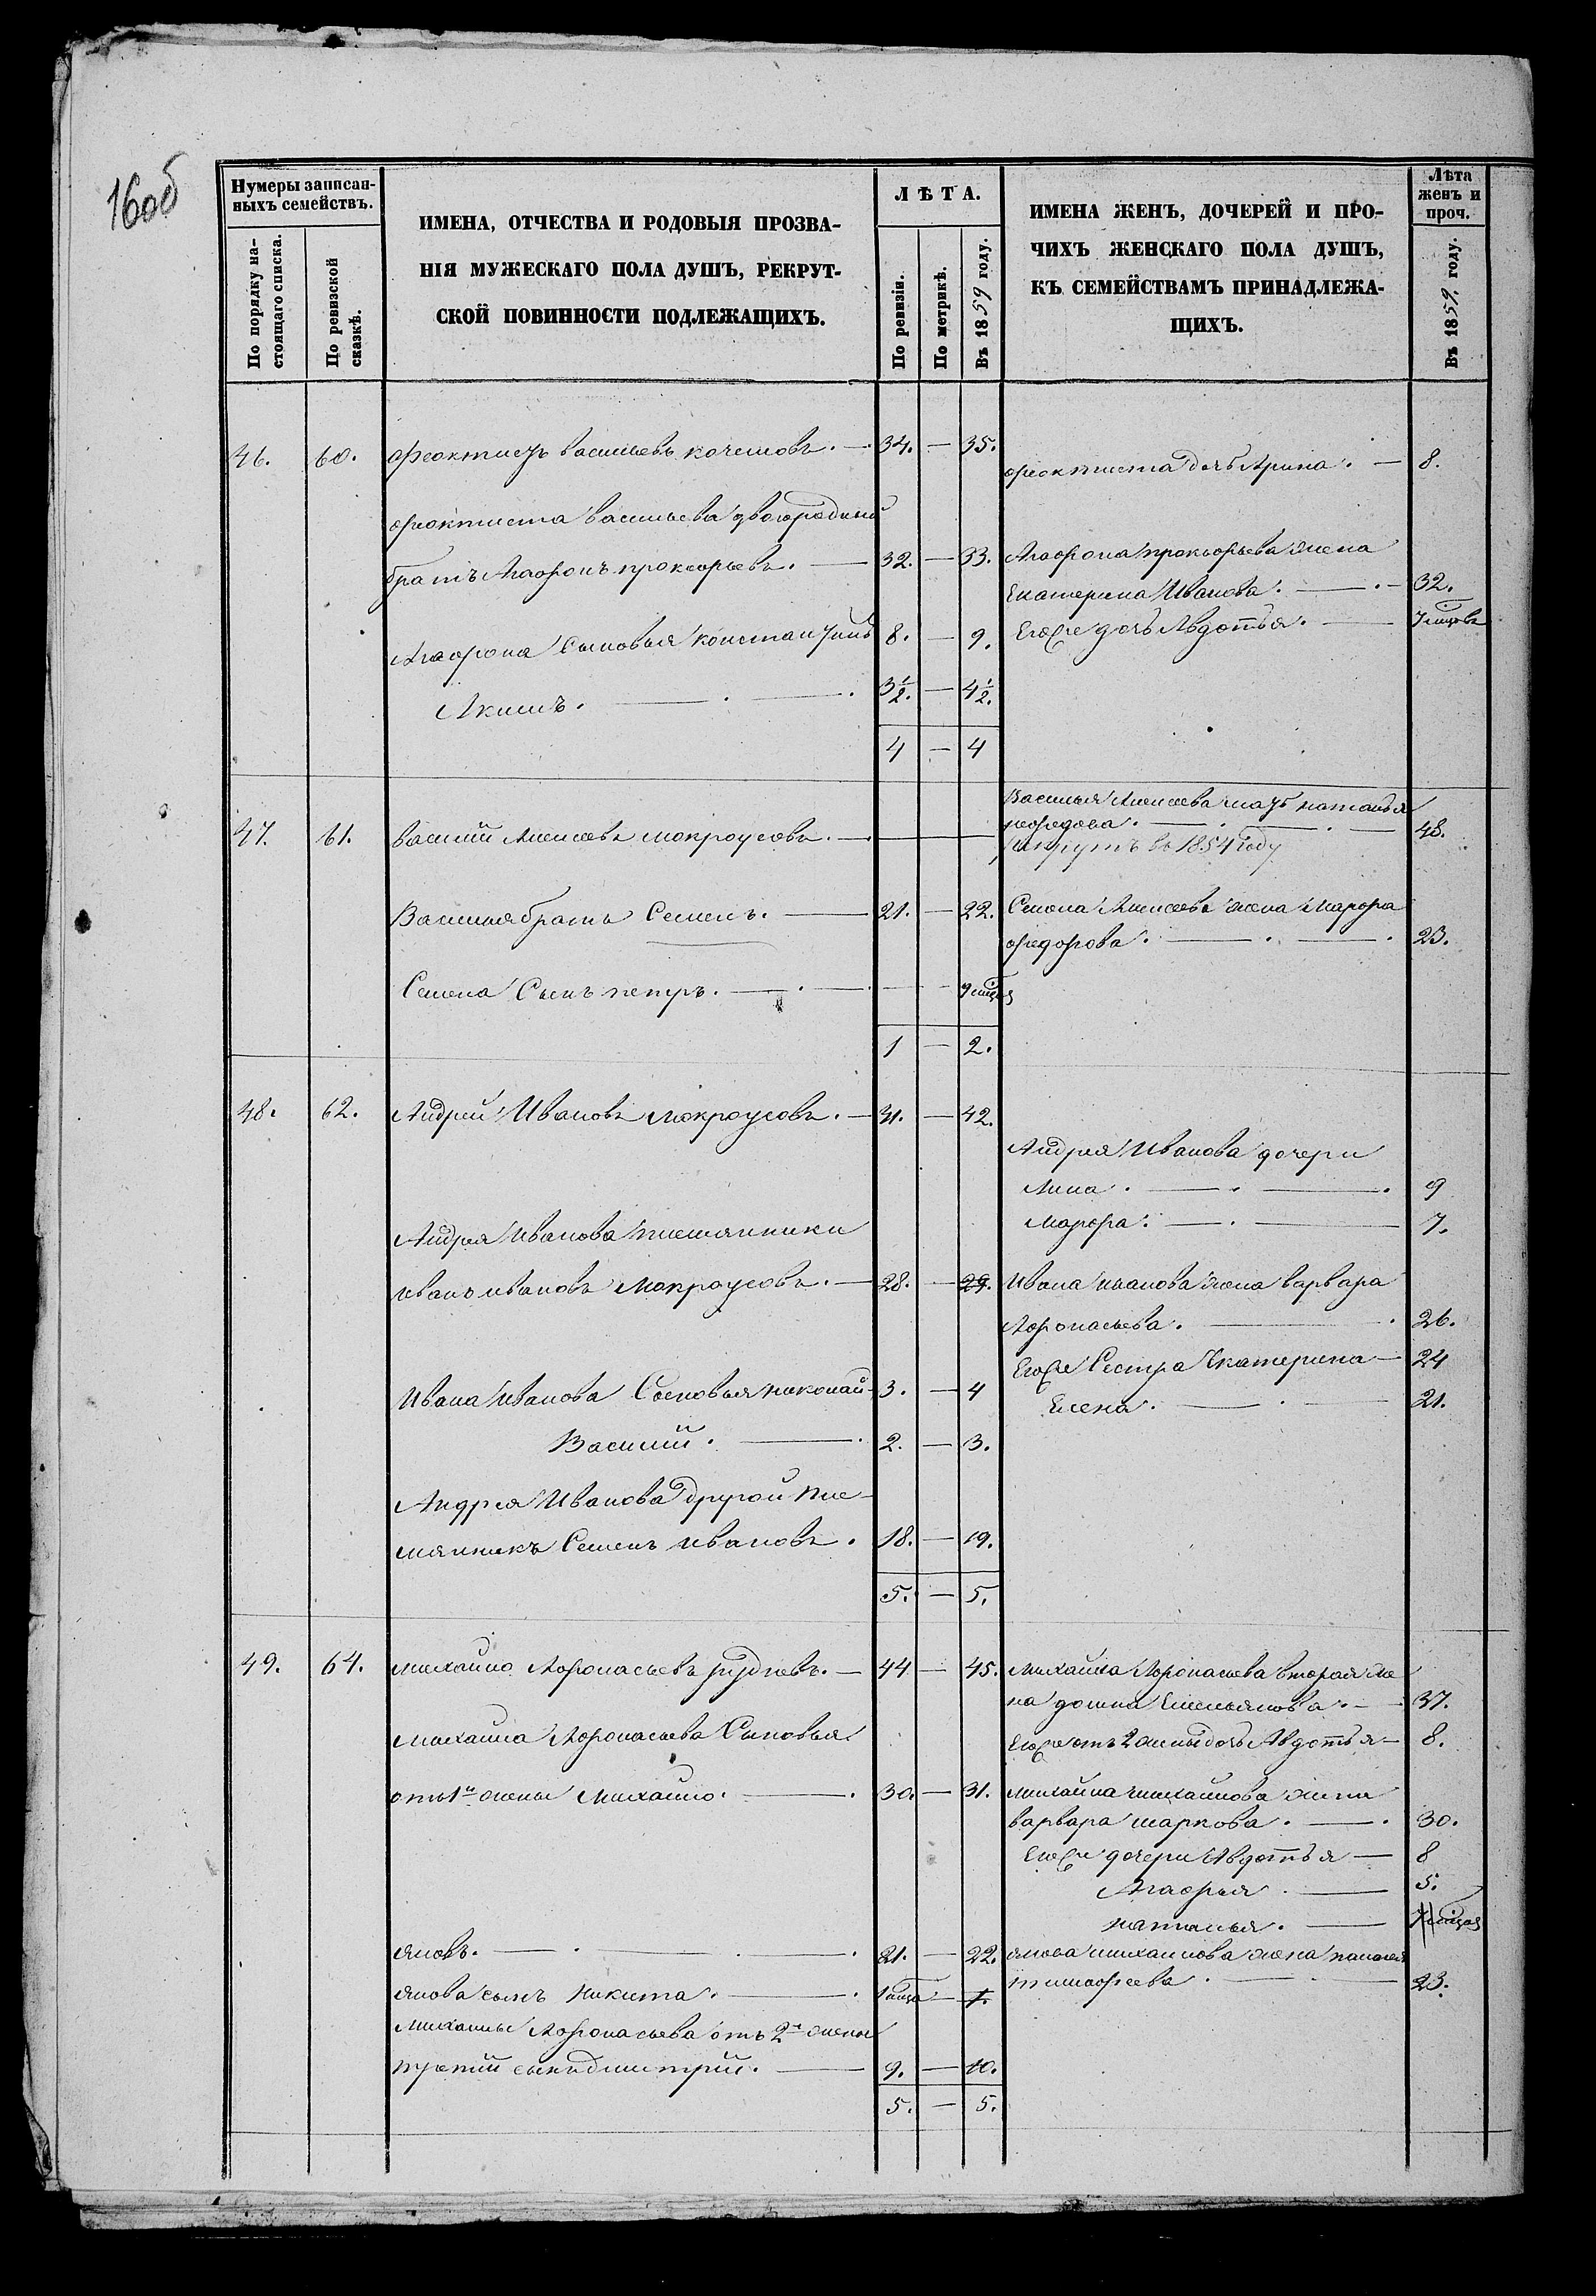 16об
Нумеры записан-
ныхъ семействъ.
По порядку на-
стоящаго списка.
По ревизской
сказкѣ.
ИМЕНА, ОТЧЕСТВА И РОДОВЫЯ ПРОЗВА-
НІЯ МУЖЕСКАГО ПОЛА ДУШЪ, РЕКРУТ-
СКОЙ ПОВИННОСТИ ПОДЛЕЖАЩИХЪ.
ЛѢТА.
По ревизіи.
По метрикѣ.
Въ 1859 году.
ИМЕНА ЖЕНЪ, ДОЧЕРЕЙ И ПРО-
ЧИХЪ ЖЕНСКАГО ПОЛА ДУШЪ,
КЪ СЕМЕЙСТВАМЪ ПРИНАДЛЕЖА-
ЩИХЪ.
Лѣта
женъ и
проч.
Въ 1859 году.
46. 60. Феоктистъ Васильевъ — 34. — 35.
Феоктиста дочь Арина. — 8.
Феоктиста Васильева двоюродный
братъ Агафонъ Прокофьевъ. — 32. — 33.
Агафона Прокофьева жена
Екатерина Иванова. — 32.
Агафона сыновья Константинъ 8. — 9.
Его же дочь Авдотья. — 7 мцовъ
Акимъ. — 3½. — 4½.
4 — 4
47. 61. Василий Алексеевъ Мокроусовъ. —
Василья Алексеева мать Наталья
Федорова. — 48.
рекрутъ въ 1854 году
Василья братъ Семенъ. — 21. — 22.
Семена Алексеева жена Марфа
Федорова. — 23.
Семена сынъ Петръ. — 9 мцов
1 — 2.
48. 62. Андрей Ивановъ Мокроусовъ. — 41. — 42.
Андрея Иванова дочери
Анна. — 9
Марфа. — 7.
Андрея Иванова племянники
Иванъ Ивановъ Мокроусовъ. — 28. — 29.
Ивана Иванова жена Варвара
Афонасьева. — 26.
Его же сестра Екатерина — 24
Елена. — 21.
Ивана Иванова сыновья Николай 3. — 4
Василий. — 2. — 3.
Андрея Иванова другой пле-
мянникъ Семенъ Ивановъ. 18. — 19.
5. — 5.
49. 64. Михайло Афонасьевъ Рудневъ. — 44 — 45.
Михайла Афонасьева вторая же
на Домна Емельянова. — 37.
Его же отъ 2 жены дочь Авдотья — 8.
Михайла Афонасьева сыновья
отъ 1й жены Михайло. — 30. — 31.
Михайла Михайлова жена
Варвара Маркова. — 30.
Его же дочери Авдотья — 8
Агафья. — 5.
Наталья. — 7 мцов
Яковъ. — 21. — 22.
Якова Михайлова жена
Тимофеева. — 23.
Якова сынъ Никита. — 1 мца — 1.
Михайлы Афонасьева отъ 2й жены
третий сынъ Димитрий. — 9. — 10.
5. — 5.